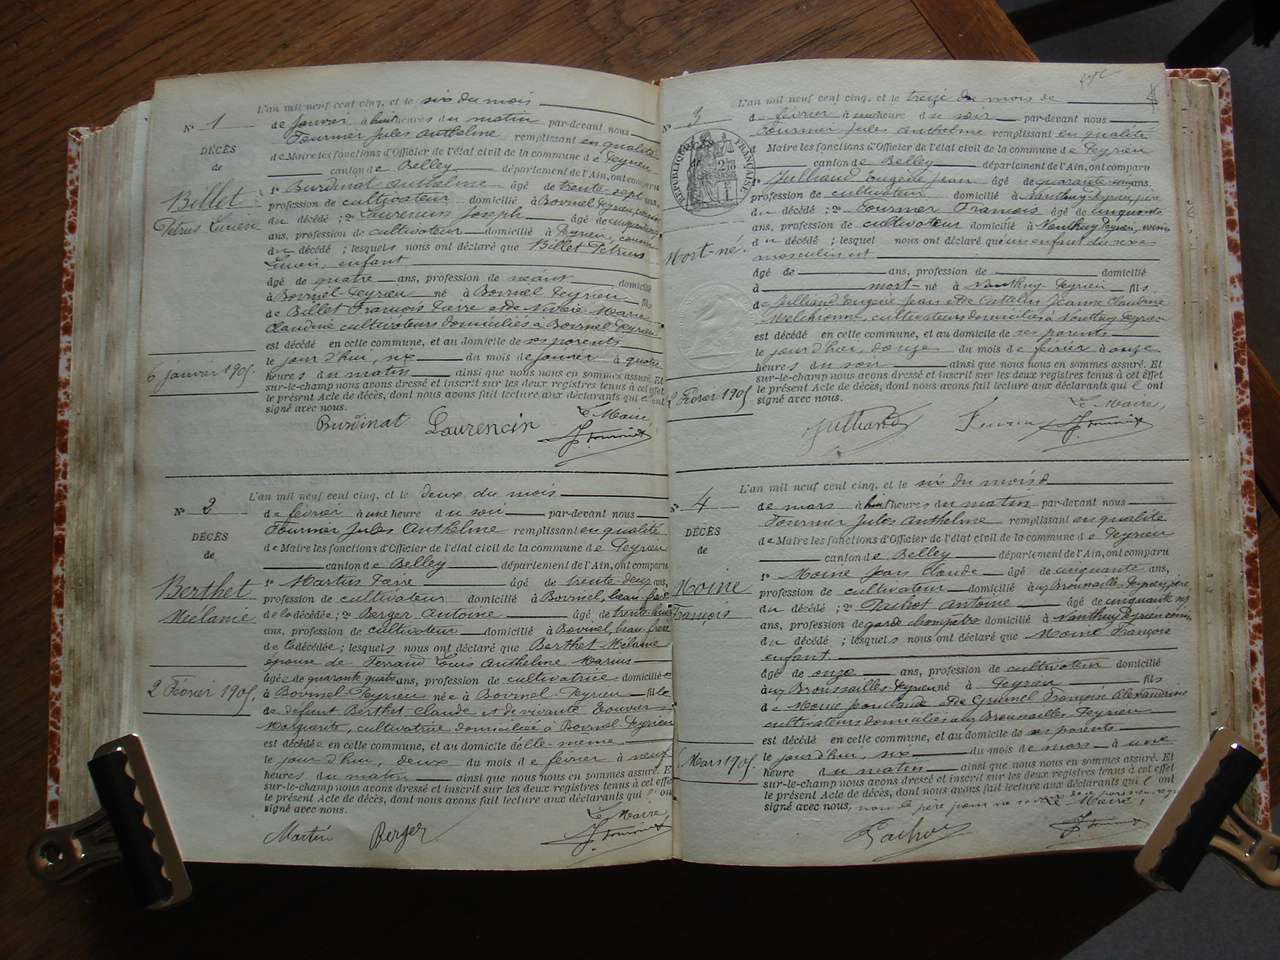 L'an mil neuf cent cinq, et le six du mois
N° 1
de Janvier à huit heures du matin par-devant nous
Fournier Jules Anthelme remplissant en qualité
DÉCÈS
de Maire les fonctions d'Officier de l'état civil de la commune de Peyrieu
de
canton de Belley département de l'Ain, ont comparu
Billet
1° Burdinat Anthelme âgé de trente-sept ans,
profession de cultivateur domicilié à Bovinel Peyrieu,
Petrus Lucien
du décédé ; 2° Laurencin Joseph âgé de
ans, profession de cultivateur domicilié à Peyrieu,
du décédé ; lesquels nous ont déclaré que Billet Pétrus
Lucien, enfant
âgé de quatre ans, profession de néant domicilié
à Bovinel-Peyrieu né à Bovinel Peyrieu fils
de Billet François Pierre et de Marie
Claudine cultivateurs domiciliés à Bovinel Peyrieu
est décédé en cette commune, et au domicile de ses parents
6 Janvier 1905.
le jourd'hui, six du mois de Janvier à quatre
heures du matin ainsi que nous nous en sommes assuré. Et
sur-le-champ nous avons dressé et inscrit sur les deux registres tenus à cet effet
le présent Acte de décès, dont nous avons fait lecture aux déclarants qui l'ont
signé avec nous.
Le Maire,
Burdinat Laurencin J. Fournier
L'an mil neuf cent cinq, et le deux du mois
N° 2
de février à une heure du soir par-devant nous
Fournier Jules Anthelme remplissant en qualité
DÉCÈS
de Maire les fonctions d'Officier de l'état civil de la commune de Peyrieu
de
canton de Belley département de l'Ain, ont comparu
Berthet
1° Martin Pierre âgé de trente-deux ans,
profession de cultivateur domicilié à Bovinel, beau-frère
Mélanie
de la décédée ; 2° Berger Antoine âgé de trente-huit
ans, profession de cultivateur domicilié à Bovinel, beau-frère
de la décédée ; lesquels nous ont déclaré que Berthet Mélanie
épouse de Ferrand Louis Anthelme Marius
âgée de quarante quatre ans, profession de cultivatrice domiciliée
2 Février 1905.
à Bovinel-Peyrieu née à Bovinel-Peyrieu fille
de défunt Berthet Claude et de vivante
Marguerite, cultivatrice domiciliée à Bovinel-Peyrieu
est décédée en cette commune, et au domicile d'elle-même
le jourd'hui, deux du mois de février à neuf
heures du matin ainsi que nous nous en sommes assuré. Et
sur-le-champ nous avons dressé et inscrit sur les deux registres tenus à cet effet
le présent Acte de décès, dont nous avons fait lecture aux déclarants qui l'ont
signé avec nous.
Le Maire,
Martin Berger J. Fournier
L'an mil neuf cent cinq, et le treize du mois de
N° 3
de février à une heure du soir par-devant nous
Fournier Jules Anthelme remplissant en qualité
RÉPUBLIQUE FRANÇAISE
de Maire les fonctions d'Officier de l'état civil de la commune de Peyrieu
canton de Belley département de l'Ain, ont comparu
1° Julliand Eugène Jean âgé de quarante ans,
profession de cultivateur domicilié à Nanthuy Peyrieu, père
du décédé ; 2° Fournier François âgé de cinquante
ans, profession de cultivateur domicilié à Nanthuy Peyrieu, voisin
Mort-né
du décédé ; lesquels nous ont déclaré que un enfant du sexe
masculin est
âgé de ans, profession de domicilié
à mort-né à Nanthuy Peyrieu fils
de Julliand Eugène Jean et de Jeanne Claudine
cultivateurs domiciliés à Nanthuy Peyrieu
est décédé en cette commune, et au domicile de ses parents
le jourd'hui, douze du mois de février à onze
heures du soir ainsi que nous nous en sommes assuré. Et
Février 1905
sur-le-champ nous avons dressé et inscrit sur les deux registres tenus à cet effet
le présent Acte de décès, dont nous avons fait lecture aux déclarants qui l'ont
signé avec nous.
Le Maire,
Julliand J. Fournier
L'an mil neuf cent cinq, et le six du mois d
N° 4
de mars à huit heures du matin par-devant nous
Fournier Jules Anthelme remplissant en qualité
DÉCÈS
de Maire les fonctions d'Officier de l'état civil de la commune de Peyrieu
de
canton de Belley département de l'Ain, ont comparu
Moine
1° Moine Jean Claude âgé de cinquante ans,
profession de cultivateur domicilié aux Broussailles-Peyrieu, père
François
du décédé ; 2° Antoine âgé de cinquante
ans, profession de garde champêtre domicilié à Nanthuy Peyrieu
du décédé ; lesquels nous ont déclaré que Moine François
enfant
âgé de onze ans, profession de cultivateur domicilié
aux Broussailles-Peyrieu né à Peyrieu fils
de Moine Jean Claude et de Françoise Alexandrine
cultivateurs domiciliés aux Broussailles-Peyrieu
est décédé en cette commune, et au domicile de ses parents
Mars 1905.
le jourd'hui, six du mois de mars à une
heure du matin ainsi que nous nous en sommes assuré. Et
sur-le-champ nous avons dressé et inscrit sur les deux registres tenus à cet effet
le présent Acte de décès, dont nous avons fait lecture aux déclarants qui l'ont
signé avec nous, non le père pour ne
Le Maire,
J. Fournier